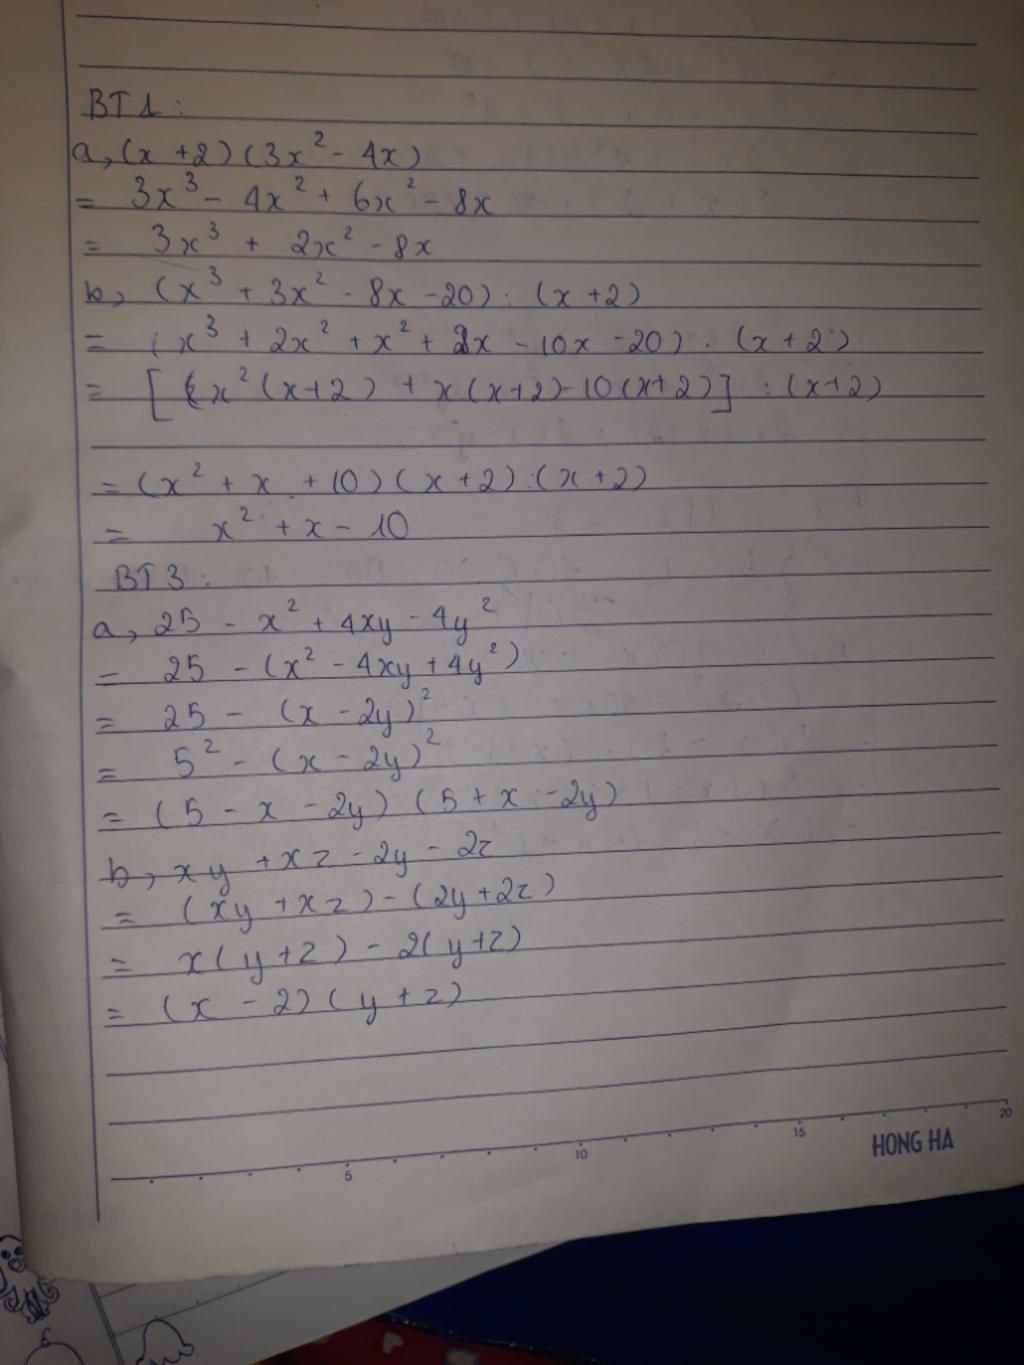 BT1:
a, (x + 2) (3x² - 4x)
= 3x³ - 4x² + 6x² - 8x
= 3x³ + 2x² - 8x
b, (x³ + 3x² - 8x - 20) : (x + 2)
= (x³ + 2x² + x² + 2x - 10x - 20) : (x + 2)
= [x² (x+2) + x (x+2) - 10 (x+2)] : (x+2)
= (x² + x + 10) (x + 2) : (x + 2)
= x² + x - 10
BT3:
a, 25 - x² + 4xy - 4y²
= 25 - (x² - 4xy + 4y²)
= 25 - (x - 2y)²
= 5² - (x - 2y)²
= (5 - x - 2y) (5 + x - 2y)
b, xy + xz - 2y - 2z
= (xy + xz) - (2y + 2z)
= x (y + z) - 2 (y + z)
= (x - 2) (y + z)
5 10 15 20
HONG HA